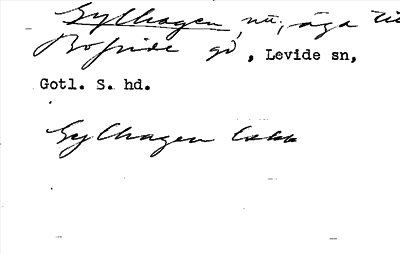 Gylhagen, nu, äga till
Bofride gd, Levide sn,
Gotl. S. hd.
Gylhagen